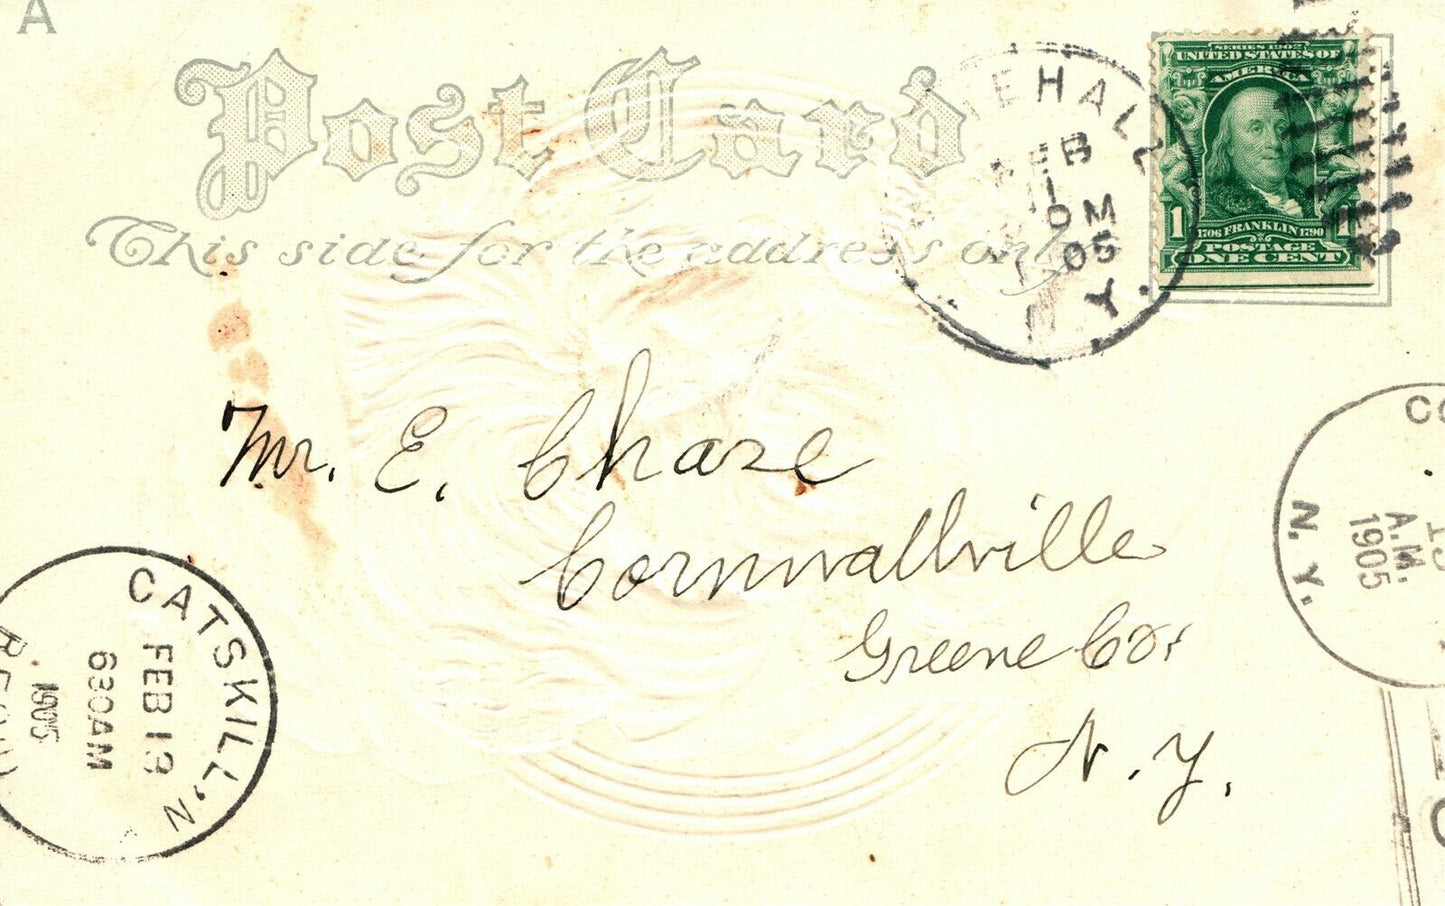 A
Post Card
This side for the address only
EHALL
FEB
11
05
Y.
SERIES 1902
UNITED STATES OF
AMERICA
1 1
1706 FRANKLIN 1790
POSTAGE
ONE CENT
Mr. E. Chase
Cornwallville
Greene Co.
N. Y.
CATSKILL, N
FEB 13
630AM
1905
CO
13
A.M.
1905
N. Y.